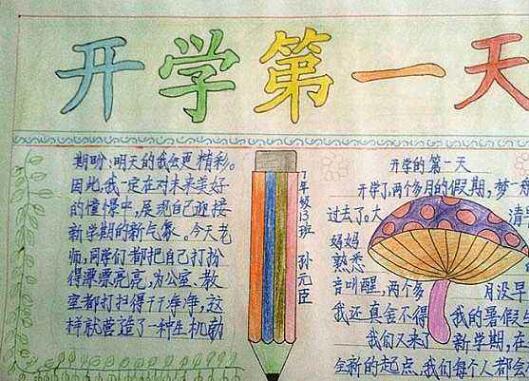 开学第一天
期盼,明天的我会更精彩。
因此,我一定在对未来美好
的憧憬中,展现自己迎接
新学期的新气象。今天老
师,同学们都把自己打扮
得漂漂亮亮,为公室、教
室都打扫得干干净净,这
样就营造了一种生机勃
7年级13班 孙元臣
开学的第一天
开学了,两个多月的假期,梦一般
过去了。大 清
妈妈
熟悉
音叫醒,两个多 月没早
我还真舍不得 我的暑假生
我们又来了 新学期,在
全新的起点,我们每个人都会